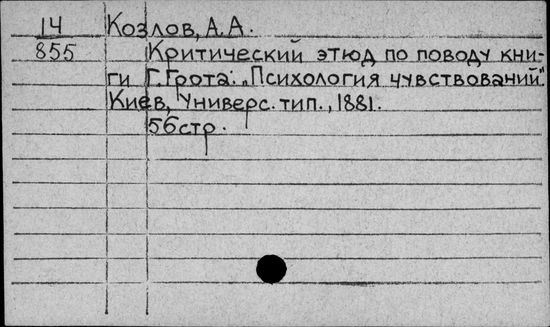 14 Козлов, А.А.
855 Критический этюд по поводу кни-
ги Г.Грота: „Психология чувствований".
Киев, Универс. тип., 1881.
56стр.